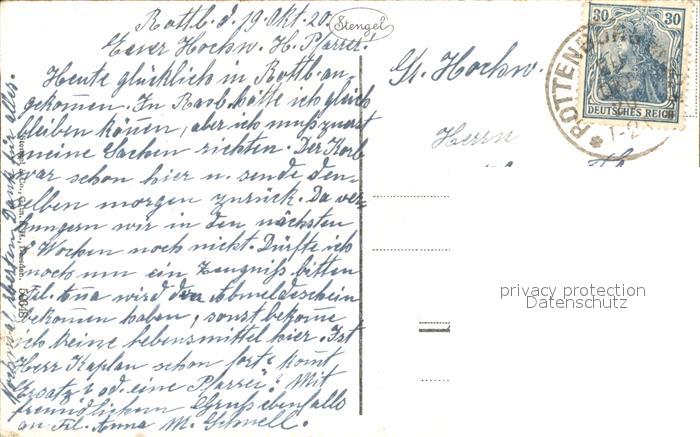 Rottb. d. 19. Okt. 20.
Stengel
Euer Hochw. H. Pfarrer!
Heute glücklich in Rottb. an-
gekommen. In hätte ich gleich
bleiben können, aber ich muß zuerst
meine Sachen richten. Der Korb
war schon hier u. sende den-
selben morgen zurück. Da ver-
hungern wir in den nächsten
8 Wochen noch nicht. Dürfte ich
noch um ein Zeugniß bitten
Frl. Anna wird den Abmeldeschein
bekommen haben, sonst bekomme
ich keine Lebensmittel hier. Ist
Herr Kaplan schon fort? kommt
Ersatz? od. eine Pfarrei? Mit
freundlichem Gruß ebenfalls
an Frl. Anna M. Schnell.
Nochmal werten Dank für alles.
Stengel & Co., Dresden. 50648
Sr. Hochw.
Herrn
30 30
DEUTSCHES REICH
ROTTENBURG
privacy protection
Datenschutz